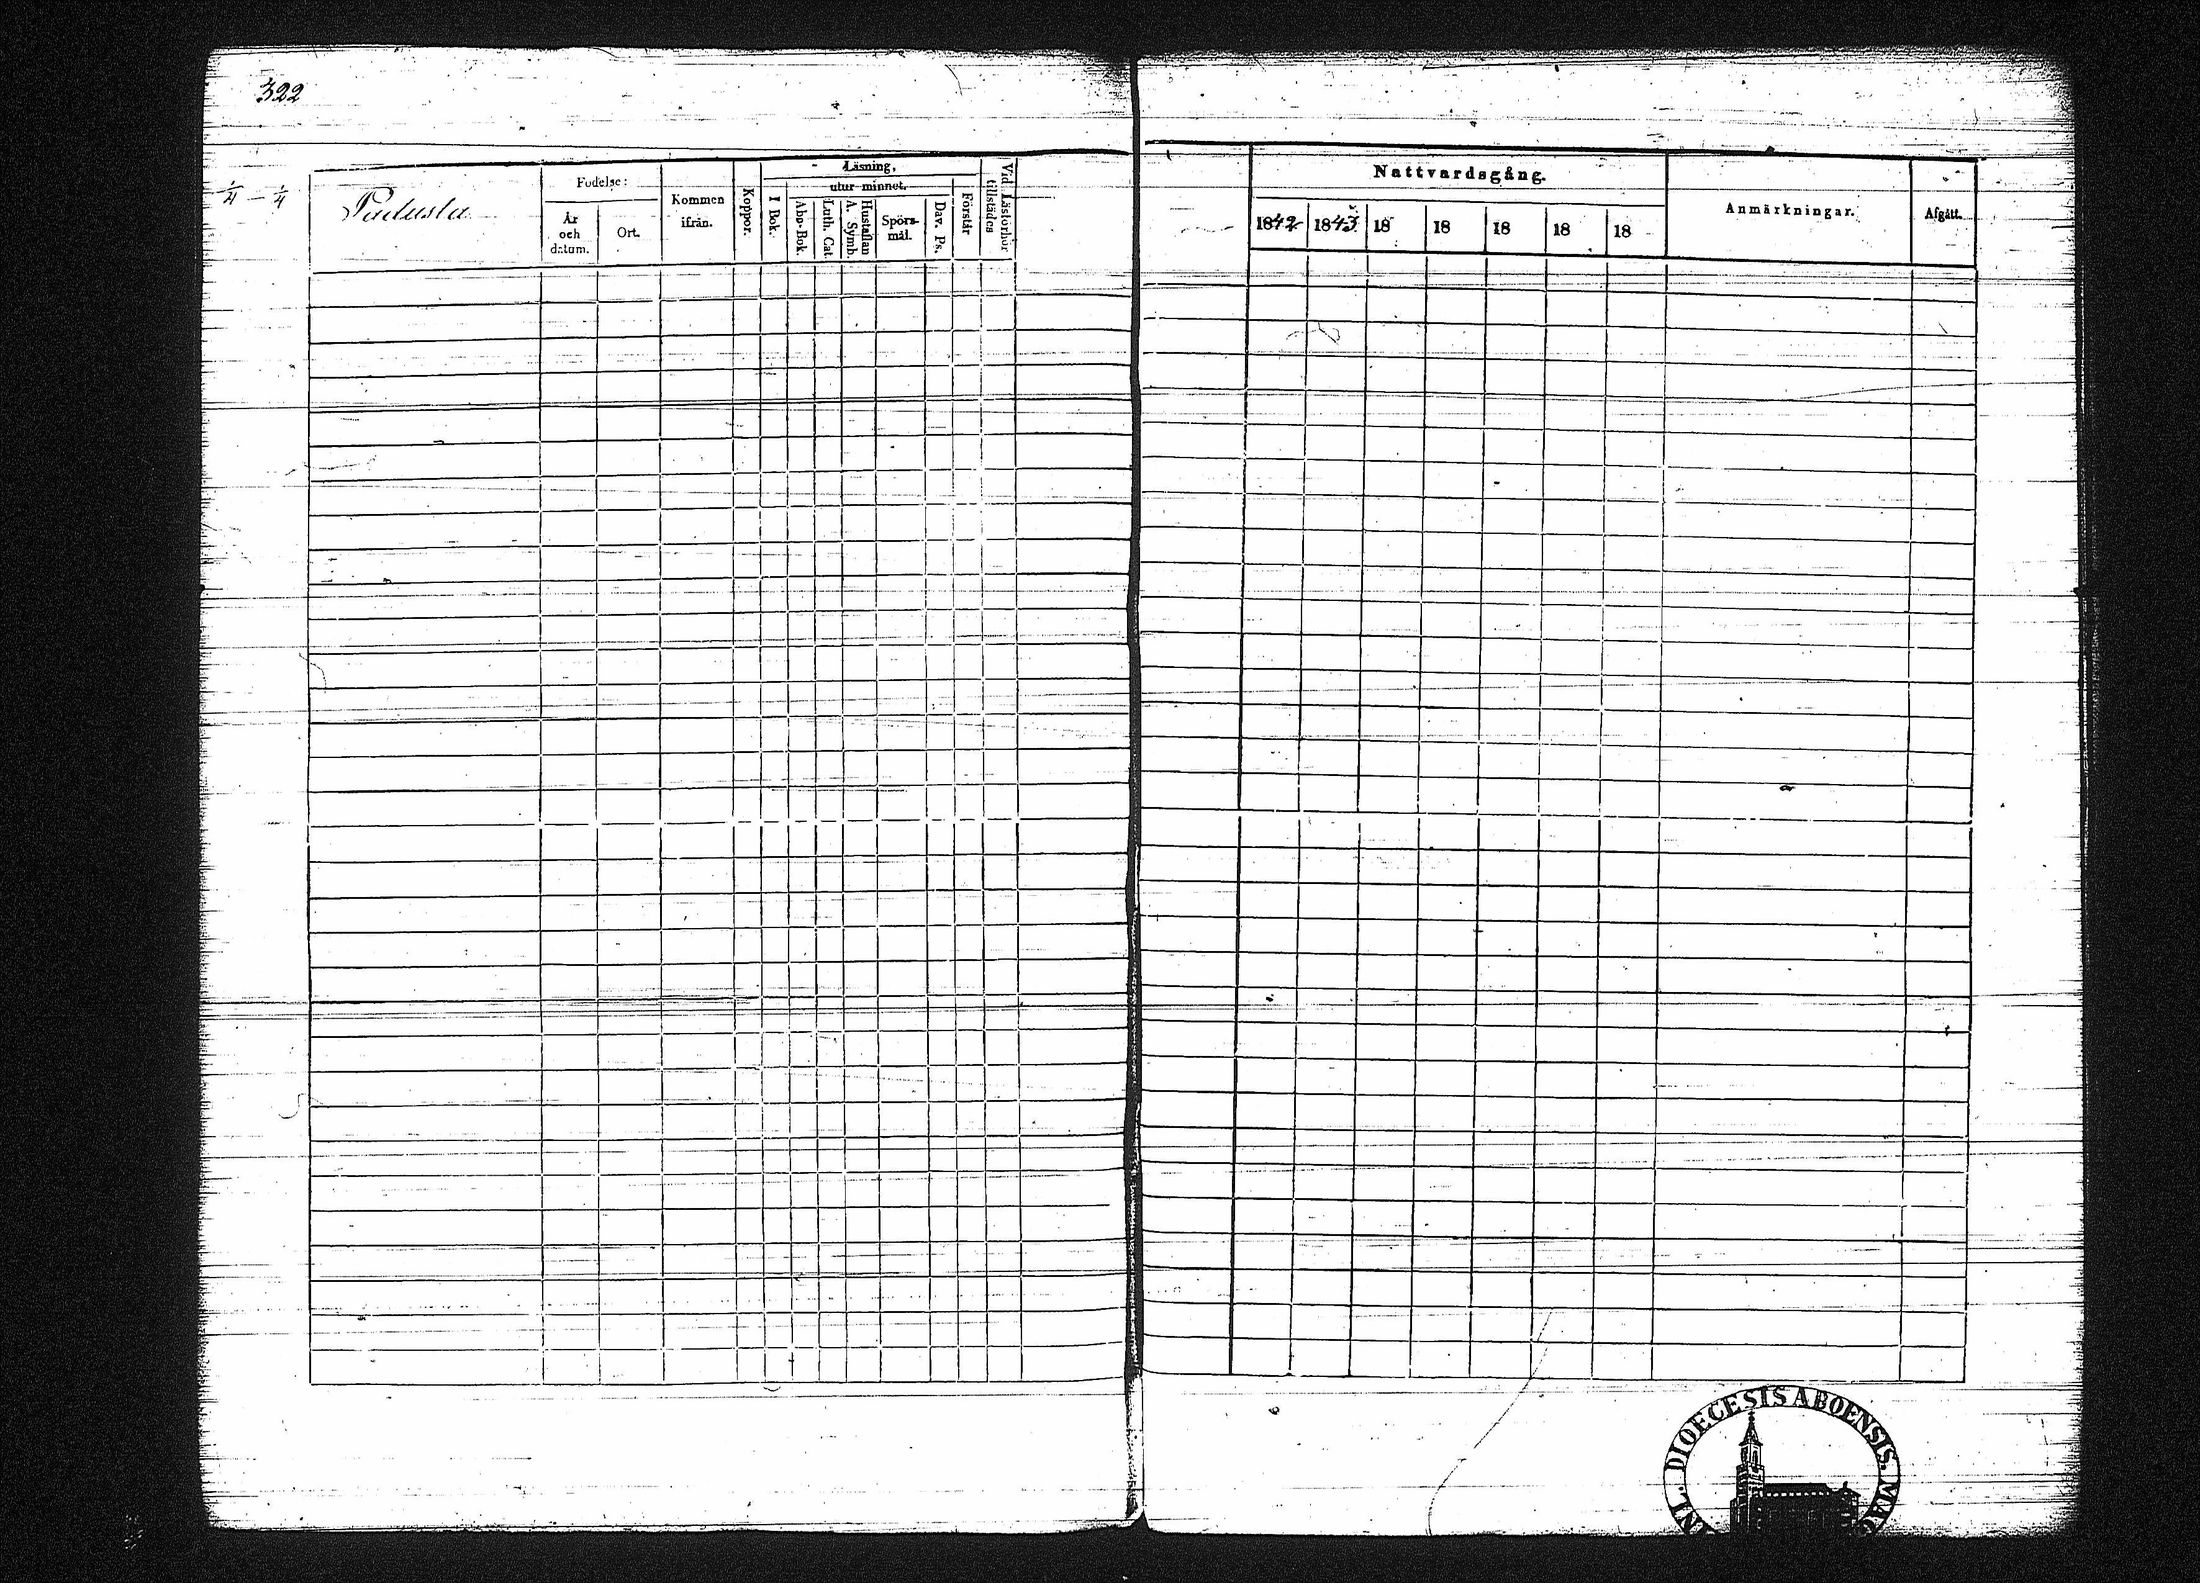 322
¼ – ¼
Padusta
Fodelse:
År
och
datum.
Ort.
Kommen
ifrån.
Koppor.
Läsning,
utur minnet.
I Bok.
Abp-Bok.
Luth. Cat.
Hustaflan
A. Symb.
Spörs-
mål.
Dav. Ps.
Förstår
Vid Läsförhör
tillstädes
Nattvardsgång.
1842 1843 18 18 18 18 18
Anmärkningar.
Afgått.
DIOECESIS ABOENSIS.